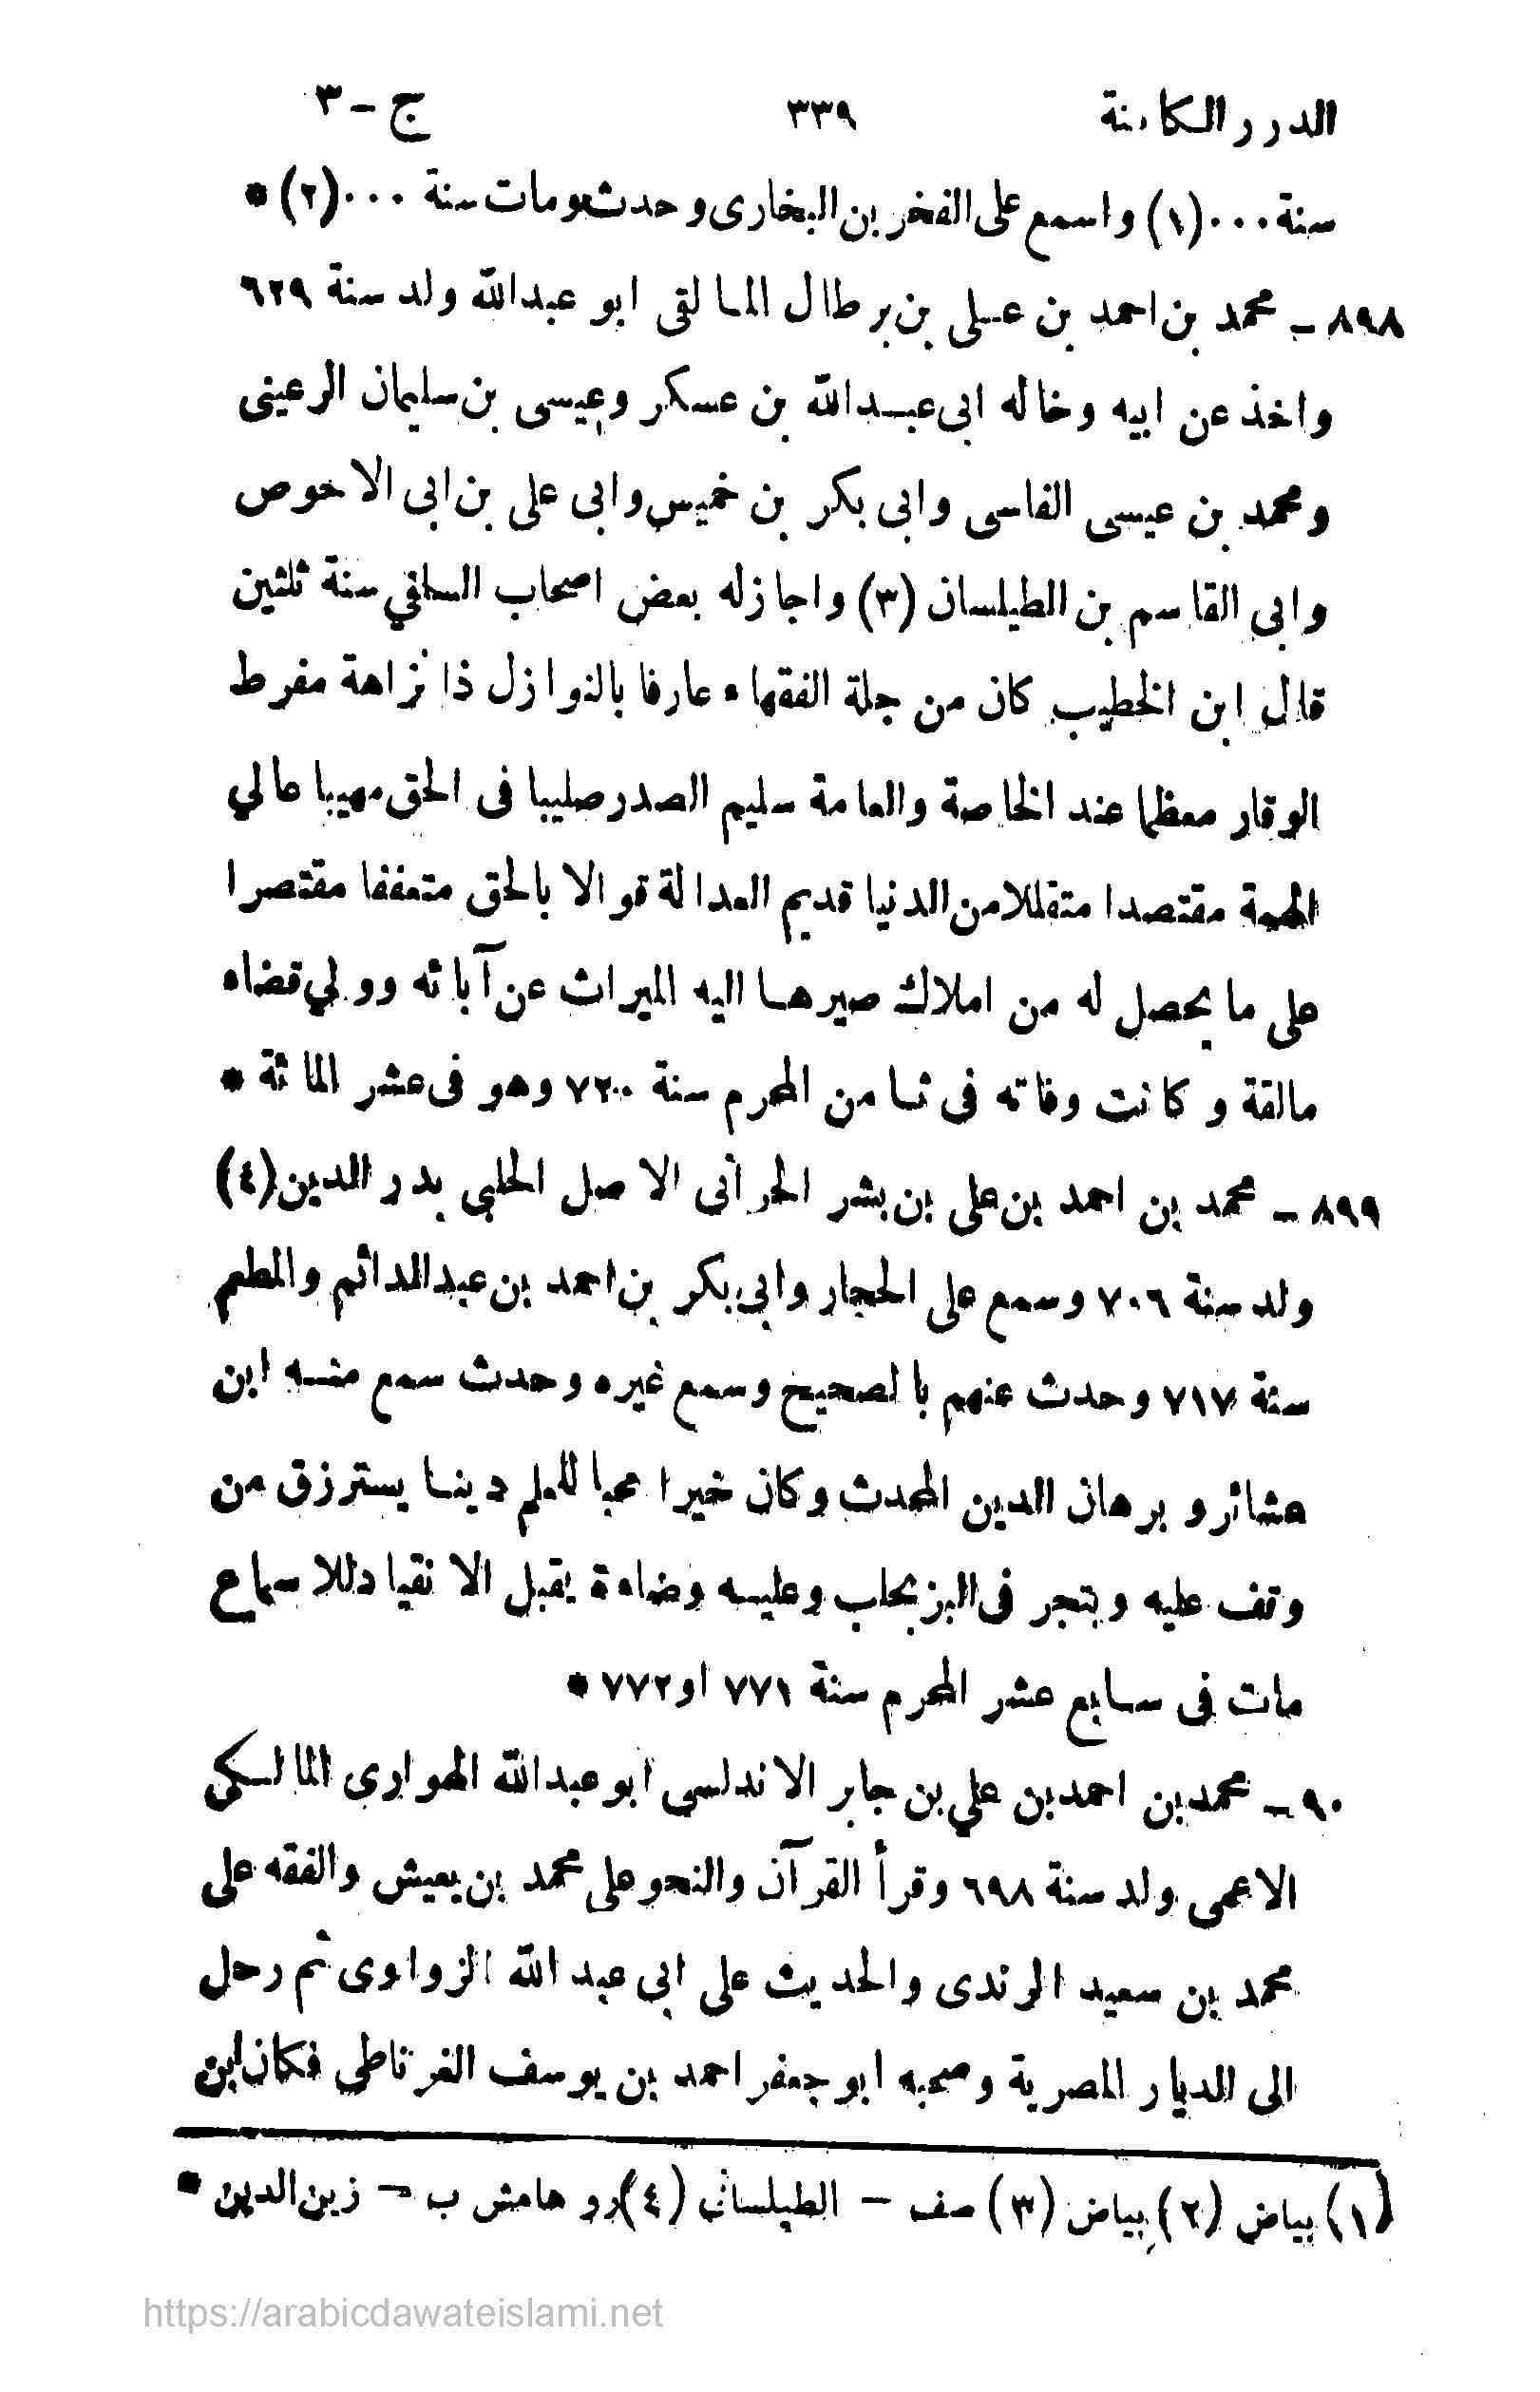 الدرر الكامنة ٣٣٩ ج - ٣
سنة ٠٠٠(١) واسمع على الفخر بن البخارى وحدث ومات سنة ٠٠٠(٢) *
٨٩٨ - محمد بن احمد بن على بن برطال المالقى ابو عبدالله ولد سنة ٦٢٩
واخذ عن ابيه وخاله ابى عبدالله بن عسكر وعيسى بن سليمان الرعينى
ومحمد بن عيسى الفاسى وابى بكر بن خميس وابى على بن ابى الاحوص
وابى القاسم بن الطيلسان (٣) واجازله بعض اصحاب السلفي سنة ثلثين
قال ابن الخطيب كان من جلة الفقهاء عارفا بالنوازل ذا نزاهة مفرط
الوقار معظما عند الخاصة والعامة سليم الصدر صليبا فى الحق مهيبا عالي
الهمة مقتصدا متقللا من الدنيا قديم العدالة قوالا بالحق متعففا مقتصرا
على ما يحصل له من املاك صيرها اليه الميراث عن آبائه وولي قضاء
مالقة وكانت وفاته فى ثامن المحرم سنة ٧٢٠٠ وهو فى عشر المائة *
٨٩٩ - محمد بن احمد بن على بن بشر الحرانى الاصل الحلبي بدر الدين(٤)
ولد سنة ٧٠٦ وسمع على الحجار وابى بكر بن احمد بن عبدالدائم والمطعم
سنة ٧١٧ وحدث عنهم بالصحيح وسمع غيره وحدث سمع منه ابن
عشائر و برهان الدين المحدث وكان خيرا محبا للعلم دينا يسترزق من
وقف عليه ويتجر فى البز بحلب وعليه وضاءة يقبل الانقياد للاسماع
مات فى سابع عشر المحرم سنة ٧٧١ او ٧٧٢ *
٩٠ - محمد بن احمد بن علي بن جابر الاندلسي ابو عبدالله الهوارى المالكى
الاعمى ولد سنة ٦٩٨ وقرأ القرآن والنحو على محمد بن يعيش والفقه على
محمد بن سعيد الرندى والحديث على ابى عبد الله الزواوى ثم رحل
الى الديار المصرية وصحبه ابو جعفر احمد بن يوسف الغرناطى فكان ابن
(١) بياض (٢) بياض (٣) صف - الطيلسانى (٤) رو هامش ب - زين الدين *
https://arabicdawateislami.net